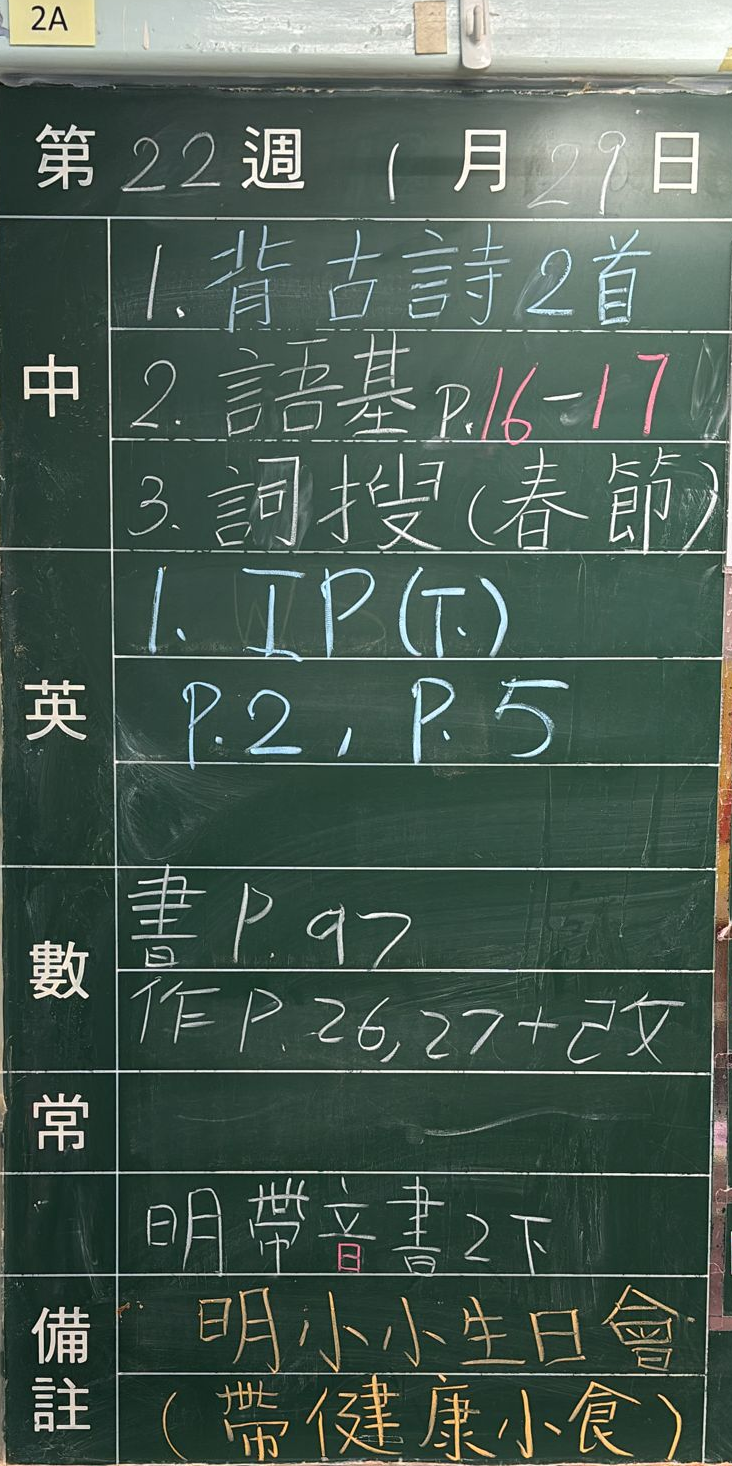 2A
第22週 1月29日
中
1. 背古詩2首
2. 語基 P.16-17
3. 詞搜(春節)
英
1. IP(下)
P.2, P.5
數
書 P.97
作 P.26,27+改
常
明帶音書2下
備註
明小小生日會
(帶健康小食)